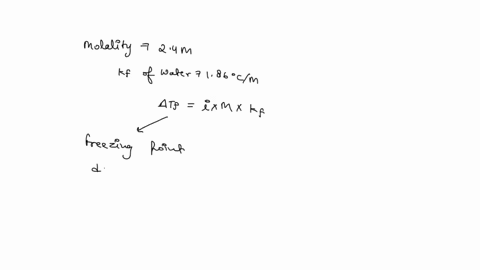 molality = 2.4 M
Kf of water = 1.86 °C/M
ΔTf = i × M × Kf
freezing point
d.